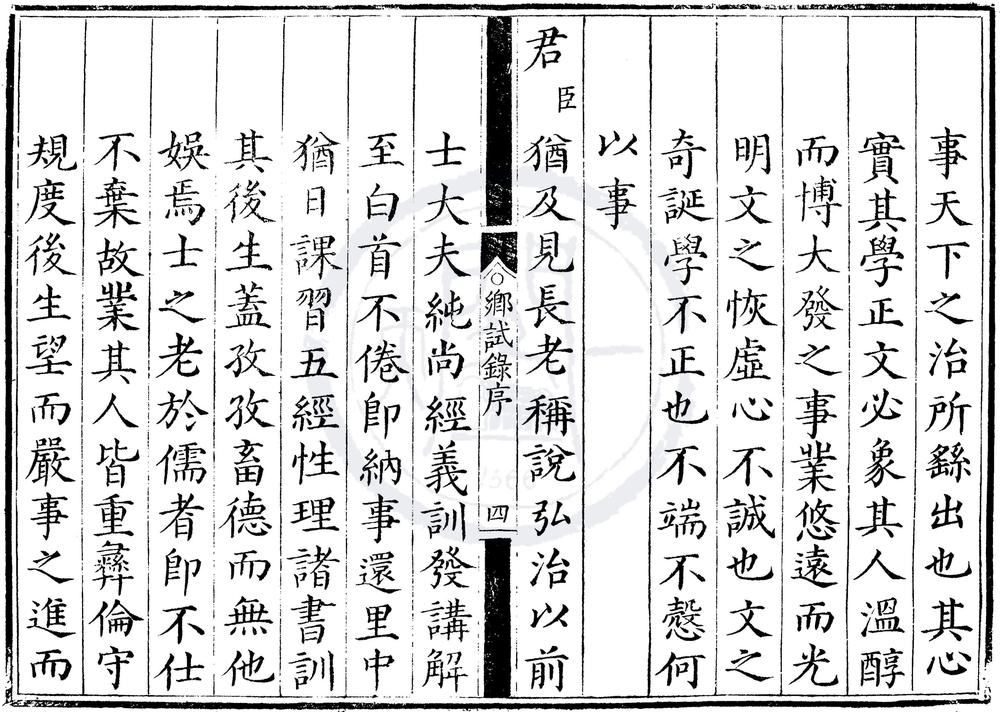 事天下之治所繇出也其心
實其學正文必象其人溫醇
而博大發之事業悠遠而光
明文之恢虛心不誠也文之
奇誕學不正也不端不愨何
以事
君臣猶及見長老稱說弘治以前
鄉試錄序
四
士大夫純尚經義訓發講解
至白首不倦卽納事還里中
猶日課習五經性理諸書訓
其後生蓋孜孜畜德而無他
娛焉士之老於儒者卽不仕
不棄故業其人皆重彝倫守
規度後生望而嚴事之進而